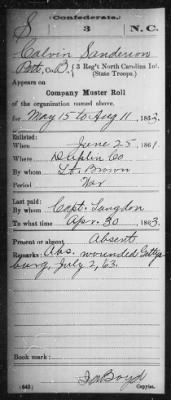 Confederate.
S 3 N.C.
Calvin Sanderson
Pvt, Co. B, 3 Reg't North Carolina Inf.
(State Troops.)
Appears on
Company Muster Roll
of the organization named above,
for May 15 to Aug 11, 1863.
Enlisted:
When June 25, 1861.
Where Duplin Co
By whom Lt. Brown
Period War
Last paid:
By whom Capt. Langdon
To what time Apr. 30, 1863.
Present or absent Absent
Remarks: Abs. wounded Gettys
burg, July 2, 63.
Book mark:
(642) Boyd
Copyist.